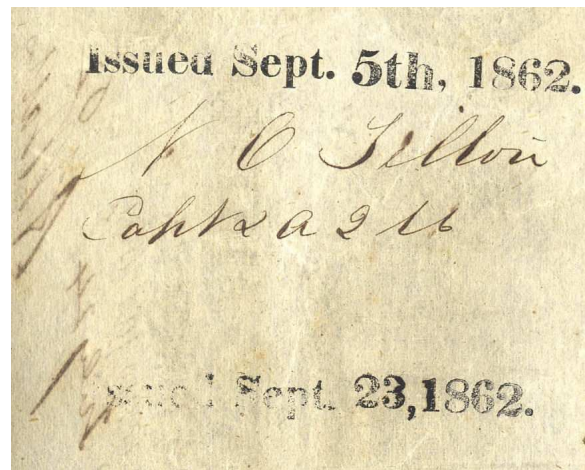 Issued Sept. 5th, 1862.
N O Tilton
Capt & A Q M
Issued Sept. 23,1862.